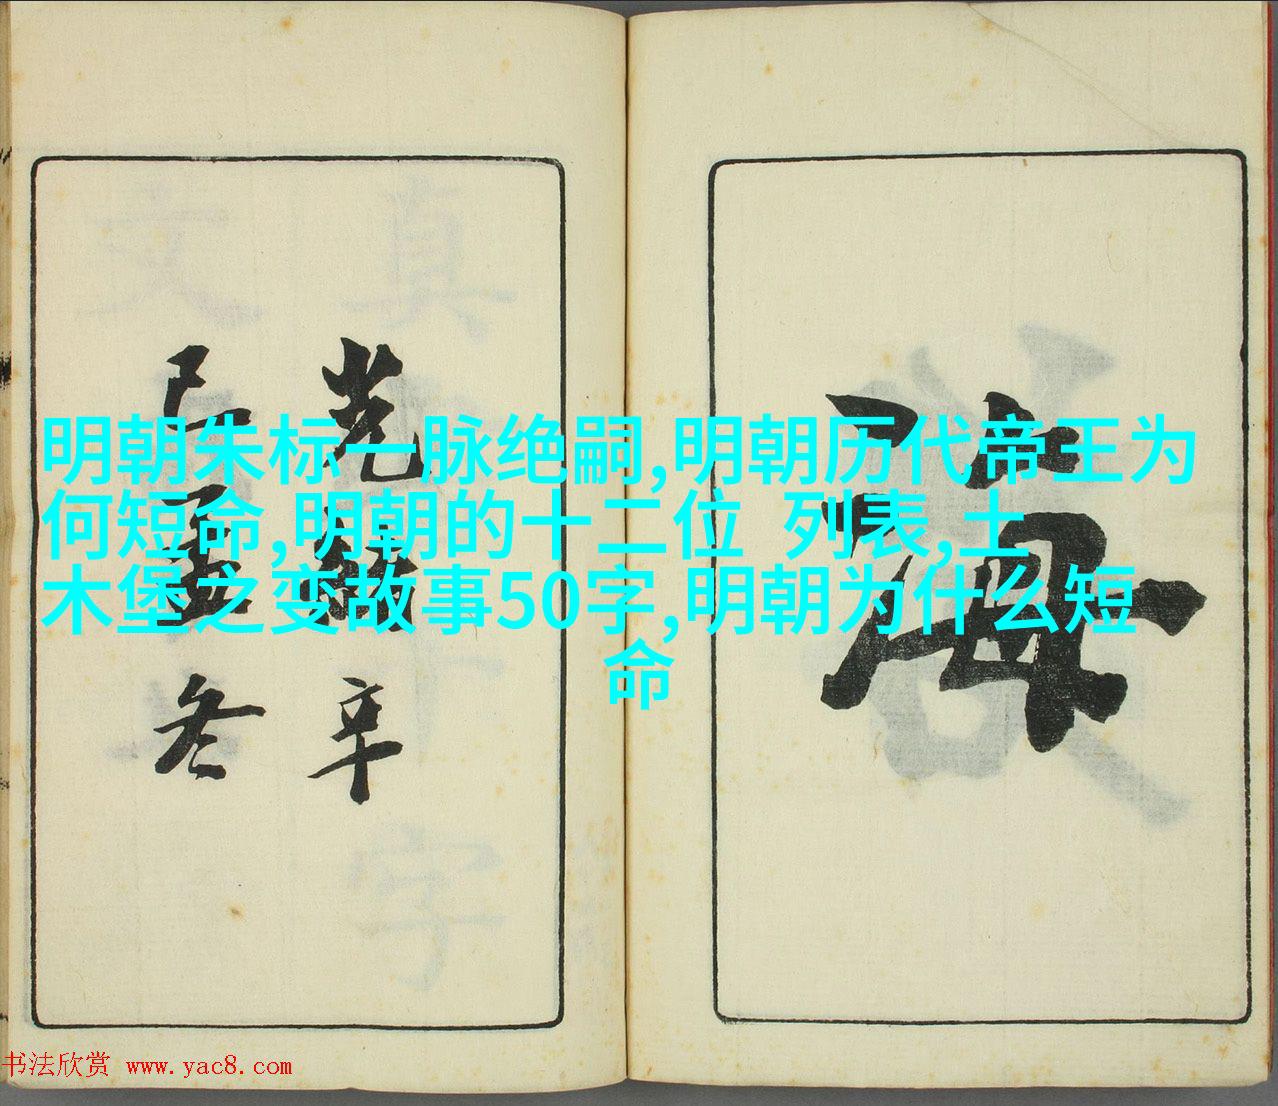 海
光緒辛
丑孟冬
明朝朱标一脉绝嗣,明朝历代帝王为
何短命,明朝的十二位 列表,土
木堡之变故事50字,明朝为什么短
命
书法欣赏 www.yac8.com